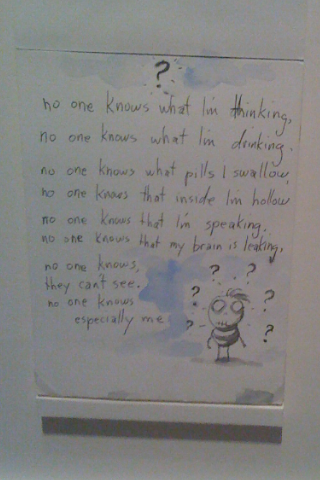 ?
no one knows what I'm thinking,
no one knows what I'm drinking.
no one knows what pills I swallow,
no one knows that inside I'm hollow
no one knows that I'm speaking.
no one knows that my brain is leaking,
no one knows,
they can't see.
no one knows
especially me.
? ?
? ?
? ?